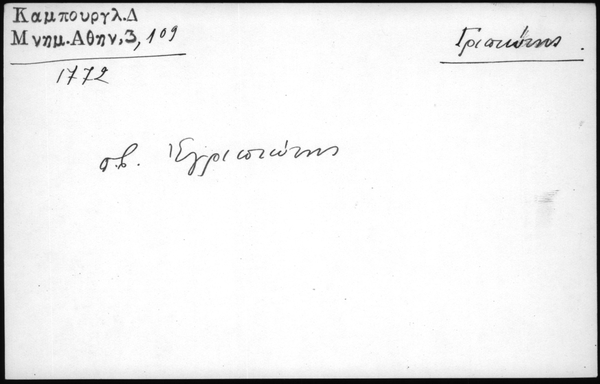 Καμπουργλ.Δ
Μνημ.Αθην,3,109
1772
Γριπιώτης.
σ.β. Ἐγριπιώτης